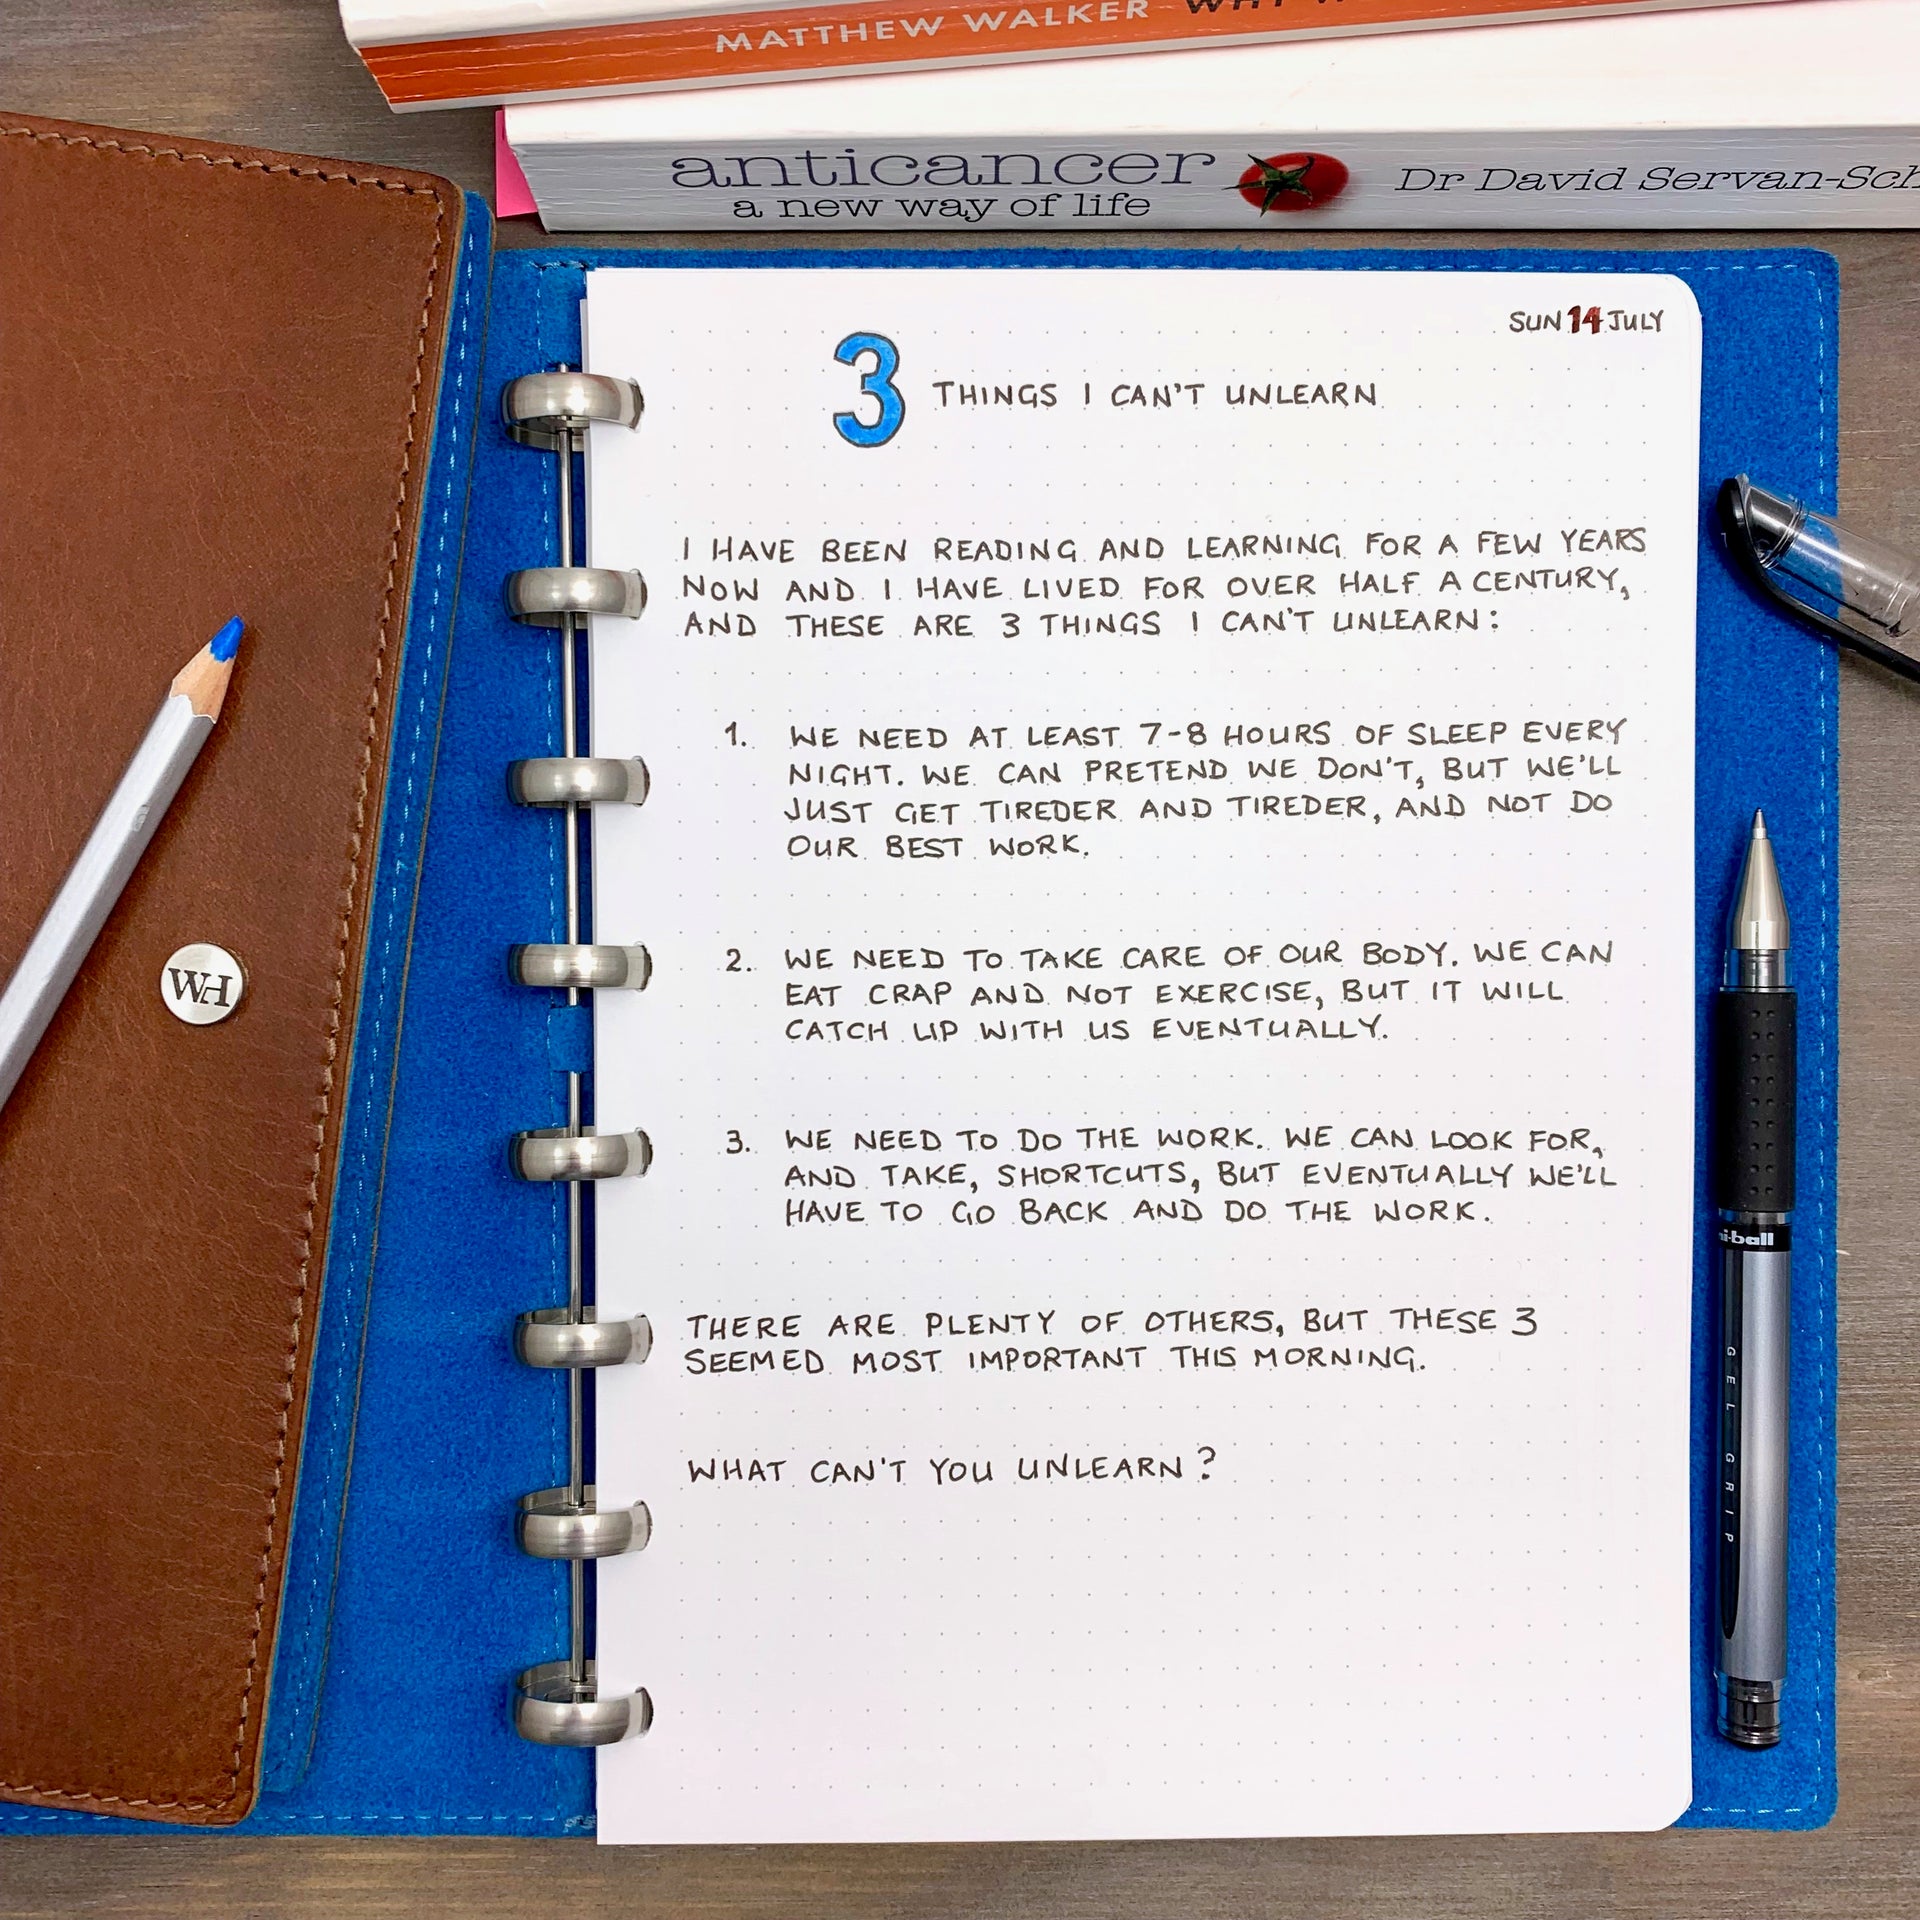 MATTHEW WALKER
anticancer
a new way of life
Dr David Servan-Sch
SUN 14 JULY
3 THINGS I CAN'T UNLEARN
I HAVE BEEN READING AND LEARNING FOR A FEW YEARS
NOW AND I HAVE LIVED FOR OVER HALF A CENTURY,
AND THESE ARE 3 THINGS I CAN'T UNLEARN:
1. WE NEED AT LEAST 7-8 HOURS OF SLEEP EVERY
NIGHT. WE CAN PRETEND WE DON'T, BUT WE'LL
JUST GET TIREDER AND TIREDER, AND NOT DO
OUR BEST WORK.
2. WE NEED TO TAKE CARE OF OUR BODY. WE CAN
EAT CRAP AND NOT EXERCISE, BUT IT WILL
CATCH UP WITH US EVENTUALLY.
3. WE NEED TO DO THE WORK. WE CAN LOOK FOR,
AND TAKE, SHORTCUTS, BUT EVENTUALLY WE'LL
HAVE TO GO BACK AND DO THE WORK.
THERE ARE PLENTY OF OTHERS, BUT THESE 3
SEEMED MOST IMPORTANT THIS MORNING.
WHAT CAN'T YOU UNLEARN?
WH
ni-ball
GEL GRIP